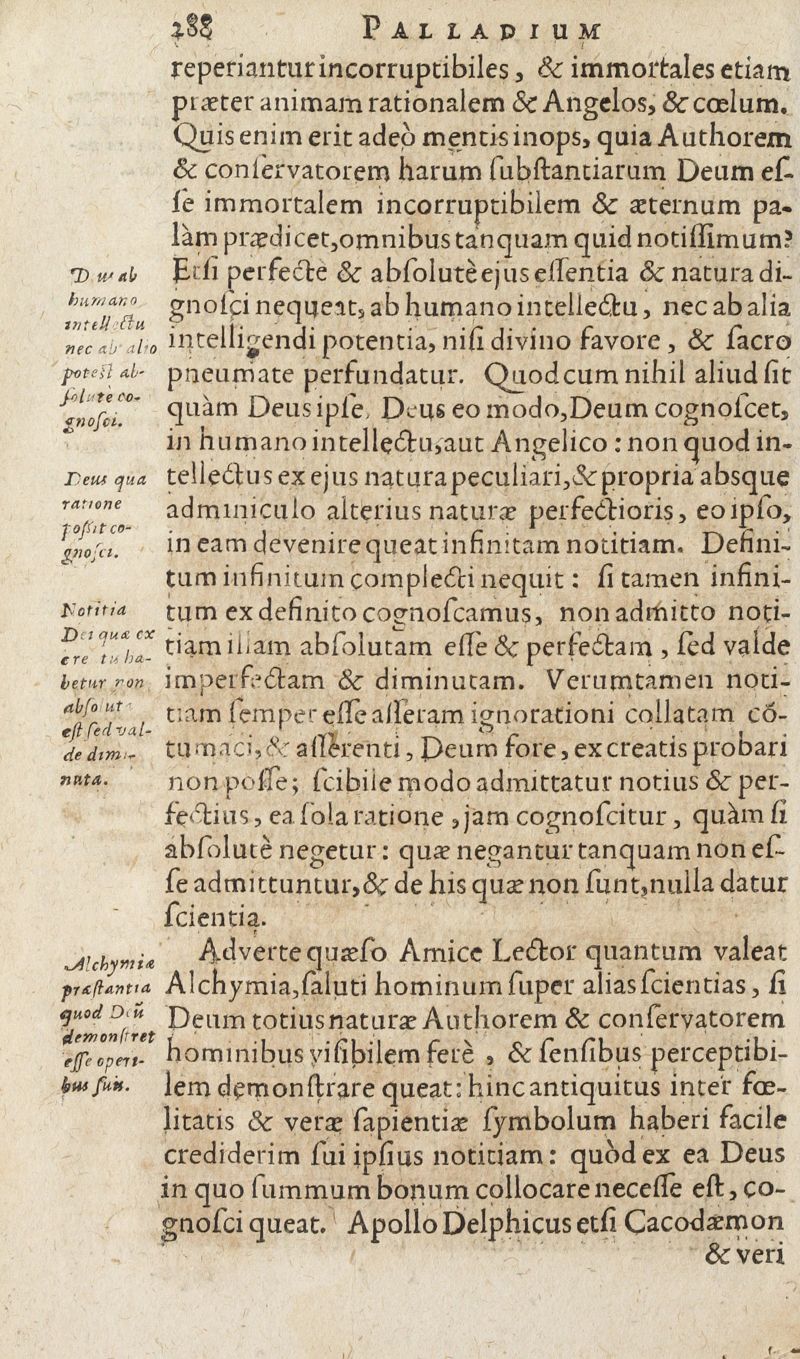 288 PALLADIUM
reperiantur incorruptibiles, & immortales etiam
præter animam rationalem & Angelos, & cœlum.
Quis enim erit adeò mentis inops, quia Authorem
& conſervatorem harum ſubſtantiarum Deum eſ-
ſe immortalem incorruptibilem & æternum pa-
làm prædicet, omnibus tanquam quid notiſſimum?
Etſi perfectè & abſolutè ejus eſſentia & natura di-
gnoſci nequeat, ab humano intellectu, nec ab alia
intelligendi potentia, niſi divino favore, & ſacro
pneumate perfundatur. Quod cum nihil aliud ſit
quàm Deus ipſe, Deus eo modo, Deum cognoſcet,
in humano intellectu, aut Angelico: non quod in-
tellectus ex ejus natura peculiari, & propria absque
adminiculo alterius naturæ perfectioris, eo ipſo,
in eam devenire queat infinitam notitiam. Defini-
tum infinitum complecti nequit: ſi tamen infini-
tum ex definito cognoſcamus, non admitto noti-
tiam illam abſolutam eſſe & perfectam, ſed valde
imperfectam & diminutam. Verumtamen noti-
tiam ſemper eſſe aſſeram ignorationi collatam cõ-
tumaci, & aſſerenti, Deum fore, ex creatis probari
non poſſe; ſcibile modo admittatur notius & per-
fectius, ea ſola ratione, jam cognoſcitur, quàm ſi
abſolutè negetur: quæ negantur tanquam non eſ-
ſe admittuntur, & de his quæ non ſunt, nulla datur
ſcientia.
Adverte quæſo Amice Lector quantum valeat
Alchymia, ſaluti hominum ſuper alias ſcientias, ſi
Deum totius naturæ Authorem & conſervatorem
hominibus viſibilem ferè, & ſenſibus perceptibi-
lem demonſtrare queat: hinc antiquitus inter fœ-
litatis & veræ ſapientiæ ſymbolum haberi facile
crediderim ſui ipſius notitiam: quòd ex ea Deus
in quo ſummum bonum collocare neceſſe eſt, co-
gnoſci queat. Apollo Delphicus etſi Cacodæmon
& veri
Deus ab
humano
intellectu
nec ab alio
poteſt ab-
ſolutè co-
gnoſci.
Deus qua
ratione
poſſit co-
gnoſci.
Notitia
Dei quæ ex
creatis ha-
betur non
abſoluta
eſt ſed val-
de dimi-
nuta.
Alchymiæ
præſtantia
quod Deũ
demonſtret
eſſe operi-
bus ſuis.